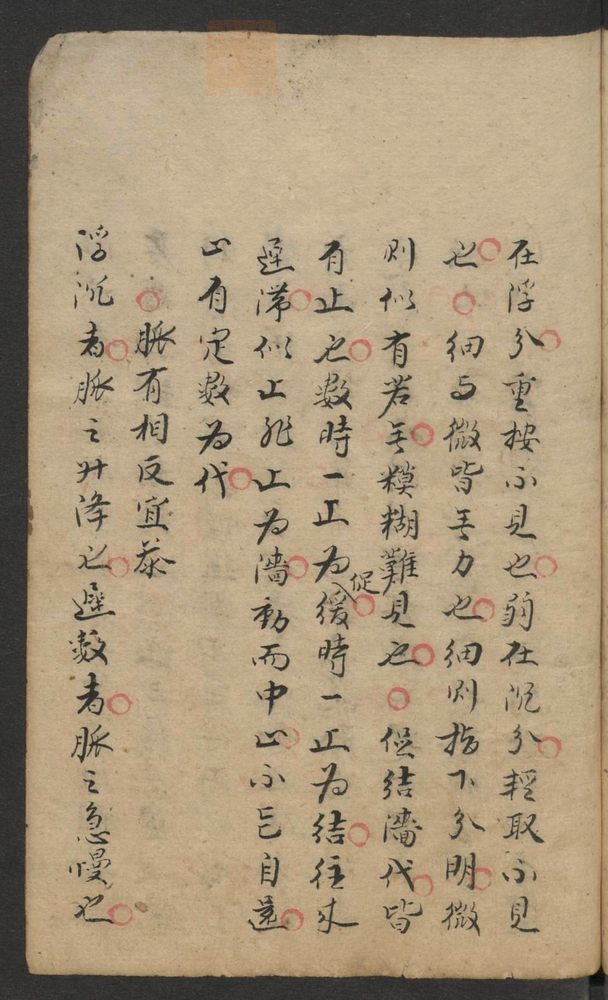 在浮分重按不見也弱在沉分輕取不見
也細与微皆无力也細則指下分明微
則似有若无糢糊難見也促結濇代皆
有止也數時一止为促緩時一止为結往来
遲滯似止非止为濇動而中止不能自还
止有定數为代
脈有相反宜参
浮沉者脈之升降也遲數者脈之急慢也